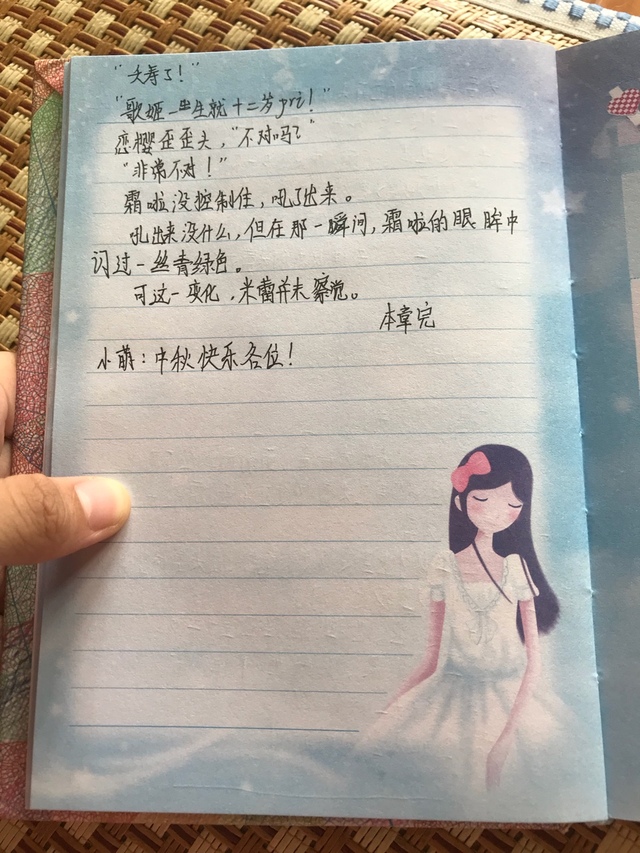 "夭寿了！"
"歌姬一出生就十二岁jri！"
恋樱歪歪头，"不对吗？"
"非常不对！"
霜啦没控制住，吼了出来。
吼出来没什么，但在那一瞬间，霜啦的眼眸中
闪过一丝青绿色。
可这一变化，米蕾并未察觉。
本章完
小萌：中秋快乐各位！